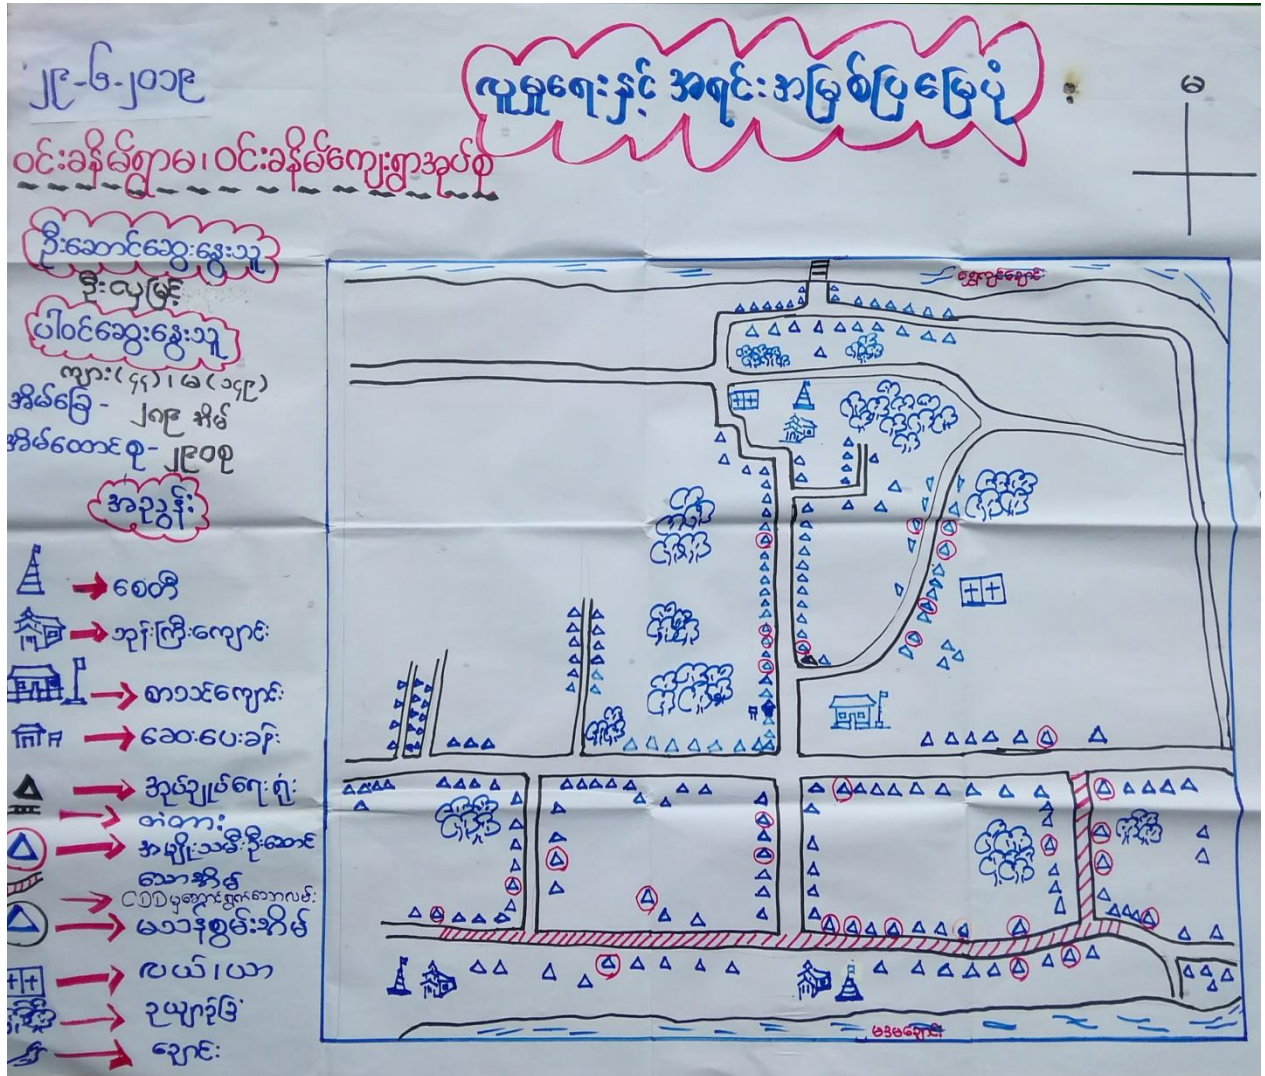 ၂၉-၆-၂၀၁၉
လူမှုရေးနှင့် အရင်းအမြစ်ပြမြေပုံ
မ
ဝင်းခနိမ်ရွာမ၊ ဝင်းခနိမ်ကျေးရွာအုပ်စု
ဦးဆောင်ဆွေးနွေးသူ
ဦးလှမြင့်
ပါဝင်ဆွေးနွေးသူ
ကျား(၄၄)၊ မ(၁၄၉)
အိမ်ခြေ- ၂၈၉ အိမ်
အိမ်ထောင်စု- ၂၉၀စု
အညွှန်း
စေတီ
ဘုန်းကြီးကျောင်း
စာသင်ကျောင်း
ဆေးပေးခန်း
အုပ်ချုပ်ရေးရုံး
တံတား
အမျိုးသမီးဦးဆောင်
သောအိမ်
CDDမှဆောင်ရွက်သောလမ်း
မသန်စွမ်းအိမ်
လယ်၊ယာ
ဥယျာဉ်ခြံ
ချောင်း
ရွှေကျင်ချောင်း
မဒမချောင်း